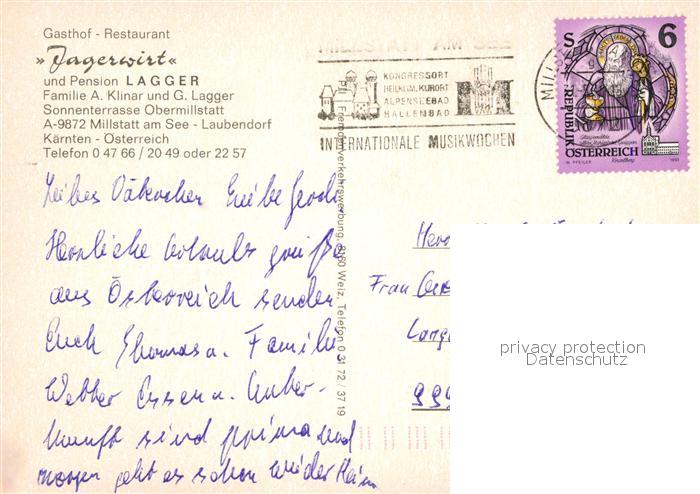 Gasthof - Restaurant
»Jagerwirt«
und Pension LAGGER
Familie A. Klinar und G. Lagger
Sonnenterrasse Obermillstatt
A-9872 Millstatt am See - Laubendorf
Kärnten - Österreich
Telefon 0 47 66 / 20 49 oder 22 57
MILLSTATT AM SEE
KONGRESSORT
HEILKLIM. KURORT
ALPENSEEBAD
HALLENBAD
INTERNATIONALE MUSIKWOCHEN
MILLS
S 6
REPUBLIK
ÖSTERREICH
W. PFEILER 1993
Fremdenverkehrswerbung, 8160 Weiz, Telefon 0 31 72 / 37 19
Liebes
Herzliche Urlaubs grüße
aus Österreich senden
Euch Thomas u. Familie
Webber Essen u. Unter-
kunft sind prima und
morgen geht es schon wieder Heim
Frau
privacy protection
Datenschutz